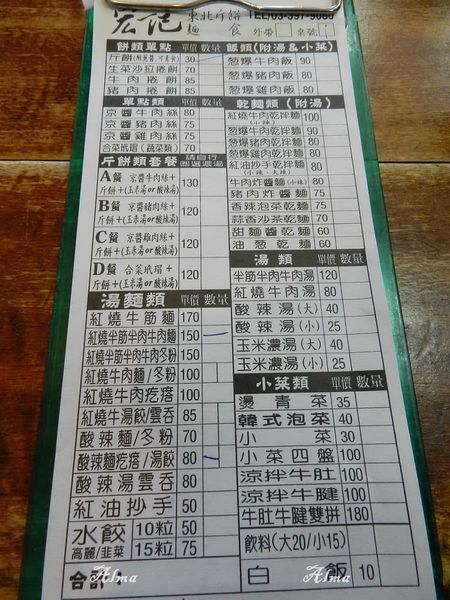 宏記 東北斤餅 麵食 TEL:03-397-9060
外帶 桌號
餅類單點 單價 數量
斤餅(附蔥醬,可素食) 30
生菜沙拉捲餅 70
牛肉捲餅 85
豬肉捲餅 85
單點類 單價 數量
京醬牛肉絲 85
京醬豬肉絲 75
京醬雞肉絲 75
合菜玳瑁(蔬菜類) 75
斤餅類套餐 請自行圈選濃湯
A餐 京醬牛肉絲+
斤餅+(玉米湯or酸辣湯) 130
B餐 京醬豬肉絲+
斤餅+(玉米湯or酸辣湯) 120
C餐 京醬雞肉絲+
斤餅+(玉米湯or酸辣湯) 120
D餐 合菜玳瑁+
斤餅+(玉米湯or酸辣湯) 120
湯麵類 單價 數量
紅燒牛筋麵 170
紅燒半筋半肉牛肉麵 150
紅燒半筋半肉牛肉冬粉 150
紅燒牛肉麵/冬粉 100
紅燒牛肉疙瘩 100
紅燒牛湯餃/雲吞 85
酸辣麵/冬粉 70
酸辣麵疙瘩/湯餃 80
酸辣湯雲吞 80
紅油抄手 50
水餃 10粒 50
高麗/韭菜 15粒 75
合計:
飯類(附湯&小菜)
蔥爆牛肉飯 90
蔥爆豬肉飯 80
蔥爆雞肉飯 80
乾麵類(附湯)
紅燒牛肉乾拌麵(小辣) 100
蔥爆牛肉乾拌麵 90
蔥爆豬肉乾拌麵 80
蔥爆雞肉乾拌麵 80
紅油抄手乾拌麵(小辣、大辣) 80
牛肉炸醬麵(小辣) 80
豬肉炸醬麵 75
香辣泡菜乾麵 75
蒜香沙茶乾麵 70
甜麵醬乾麵 60
油蔥乾麵 60
湯類 單價 數量
半筋半肉牛肉湯 120
紅燒牛肉湯 80
酸辣湯(大) 40
酸辣湯(小) 25
玉米濃湯(大) 40
玉米濃湯(小) 25
小菜類 單價 數量
燙青菜 35
韓式泡菜 40
小菜 30
小菜四盤 100
涼拌牛肚 100
涼拌牛腱 100
牛肚牛腱雙拼 180
飲料(大20/小15)
白飯 10
Alma
Alma